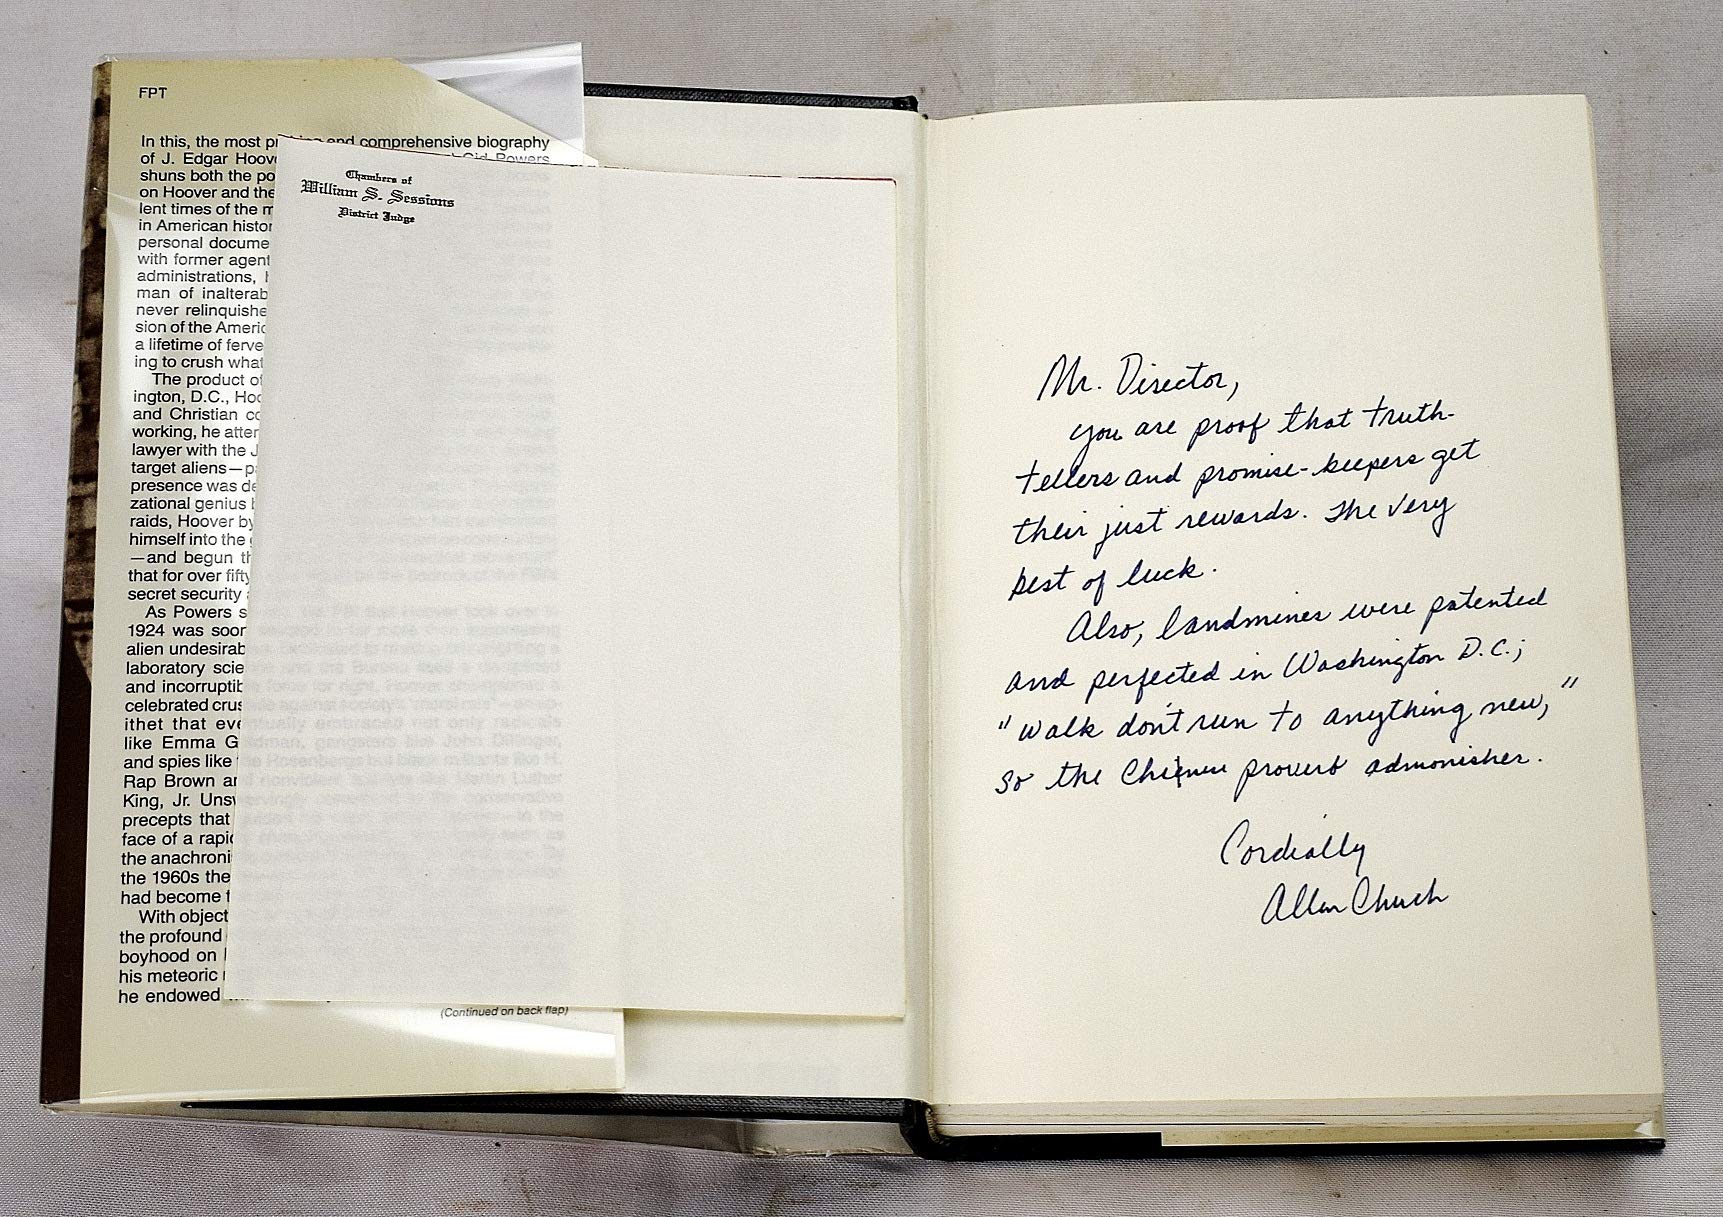 FPT
In this, the most and comprehensive biography
of J. Edgar Hoov Powers
shuns both the po
on Hoover and the
lent times of the m
in American histor
personal docume
with former agent
administrations, h
man of inalterab
never relinquishe
sion of the Americ
a lifetime of ferve
ing to crush what
The product of
ington, D.C., Hoo
and Christian co
working, he atter
lawyer with the J
target aliens—p
presence was de
zational genius
raids, Hoover by
himself into the
—and begun th
that for over fifty
secret security
As Powers s
1924 was soon
alien undesirab
laboratory scie
and incorruptib
celebrated crus
ithet that eve
like Emma G
and spies like
Rap Brown an
King, Jr. Unsw
precepts that
face of a rapid
the anachroni
the 1960s the
had become
With object
the profound
boyhood on
his meteoric
he endowed
(Continued on back flap)
Chambers of
William S. Sessions
District Judge
Mr. Director,
you are proof that truth-
tellers and promise-keepers get
their just rewards. The very
best of luck.
Also, landmines were patented
and perfected in Washington D.C.;
"walk don't run to anything new,"
so the proverb admonisher.
Cordially
Allen Church